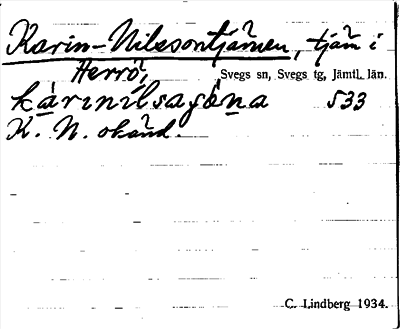 Karin-Nilssontjärnen, tjärn i
Herrö, Svegs sn, Svegs tg, Jämtl. län.
533
K. N. okänd.
C. Lindberg 1934.